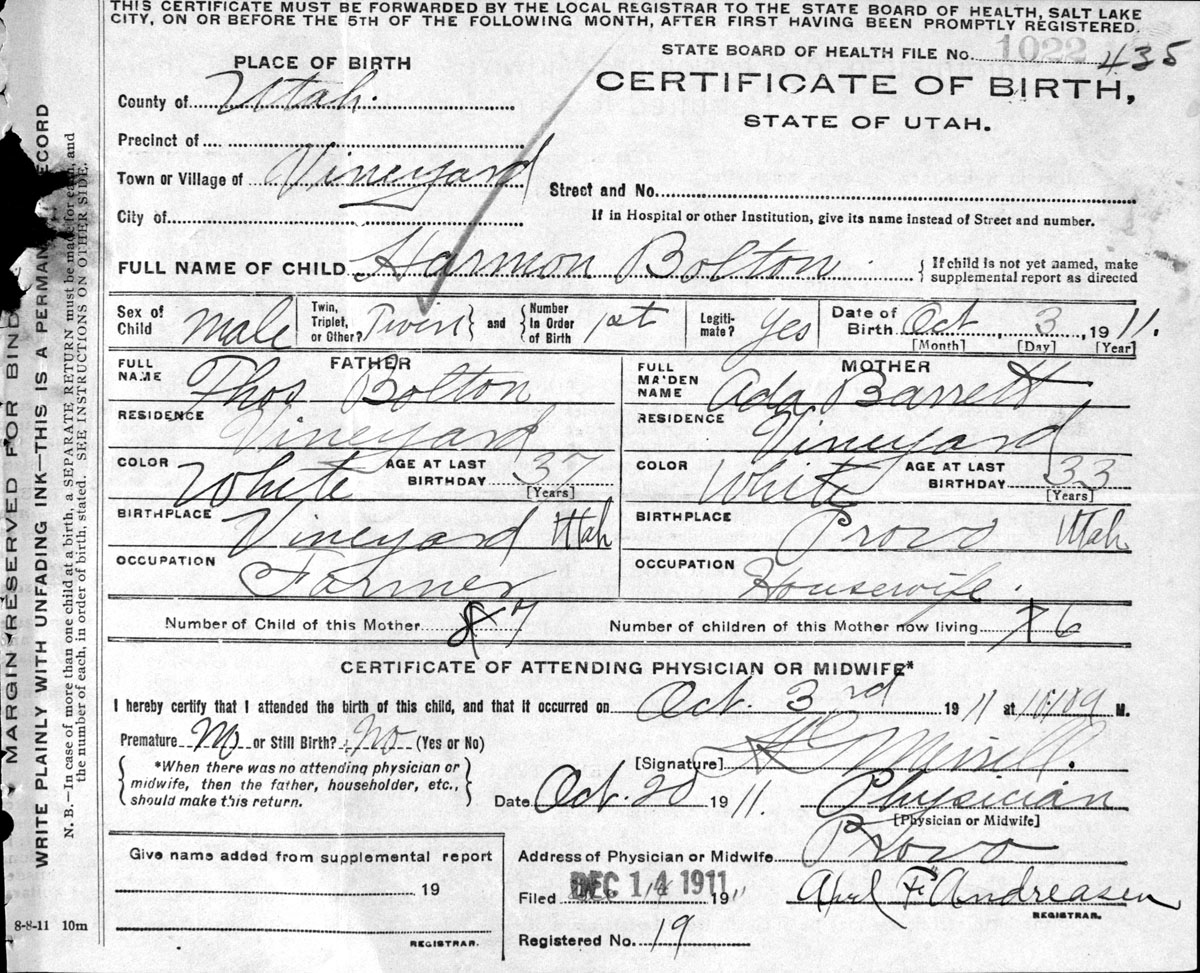 THIS CERTIFICATE MUST BE FORWARDED BY THE LOCAL REGISTRAR TO THE STATE BOARD OF HEALTH, SALT LAKE
CITY, ON OR BEFORE THE 5TH OF THE FOLLOWING MONTH, AFTER FIRST HAVING BEEN PROMPTLY REGISTERED.
STATE BOARD OF HEALTH FILE No. 1022 435
PLACE OF BIRTH
CERTIFICATE OF BIRTH,
STATE OF UTAH.
County of Utah.
Precinct of
Town or Village of Vineyard
Street and No.
City of
If in Hospital or other Institution, give its name instead of Street and number.
FULL NAME OF CHILD Harmon Bolton { If child is not yet named, make
supplemental report as directed
Sex of Child Male
Twin, Triplet, or Other? Twin } and { Number In Order of Birth 1st
Legiti-mate? Yes
Date of Birth Oct 3, 1911.
[Month] [Day] [Year]
FATHER
FULL NAME Thos Bolton
RESIDENCE Vineyard
COLOR White AGE AT LAST BIRTHDAY 37 [Years]
BIRTHPLACE Vineyard Utah
OCCUPATION Farmer
MOTHER
FULL MA'DEN NAME Ada Barrett
RESIDENCE Vineyard
COLOR White AGE AT LAST BIRTHDAY 33 [Years]
BIRTHPLACE Provo Utah
OCCUPATION Housewife.
Number of Child of this Mother 8 7 Number of children of this Mother now living 7 6
CERTIFICATE OF ATTENDING PHYSICIAN OR MIDWIFE*
I hereby certify that I attended the birth of this child, and that it occurred on Oct. 3rd 1911 at M.
Premature No or Still Birth? No (Yes or No)
[Signature] Merrill.
{ *When there was no attending physician or
midwife, then the father, householder, etc.,
should make this return. }
Date Oct. 20 1911. Physician
[Physician or Midwife]
Give name added from supplemental report
19
REGISTRAR.
Address of Physician or Midwife Provo
Filed DEC 14 1911 19 F. Andreasen
REGISTRAR.
Registered No. 19
8-8-11 10m
MARGIN RESERVED FOR BIND
WRITE PLAINLY WITH UNFADING INK—THIS IS A PERMAN RECORD
N. B.—In case of more than one child at a birth, a SEPARATE RETURN must be made for each, and
the number of each, in order of birth, stated. SEE INSTRUCTIONS ON OTHER SIDE.